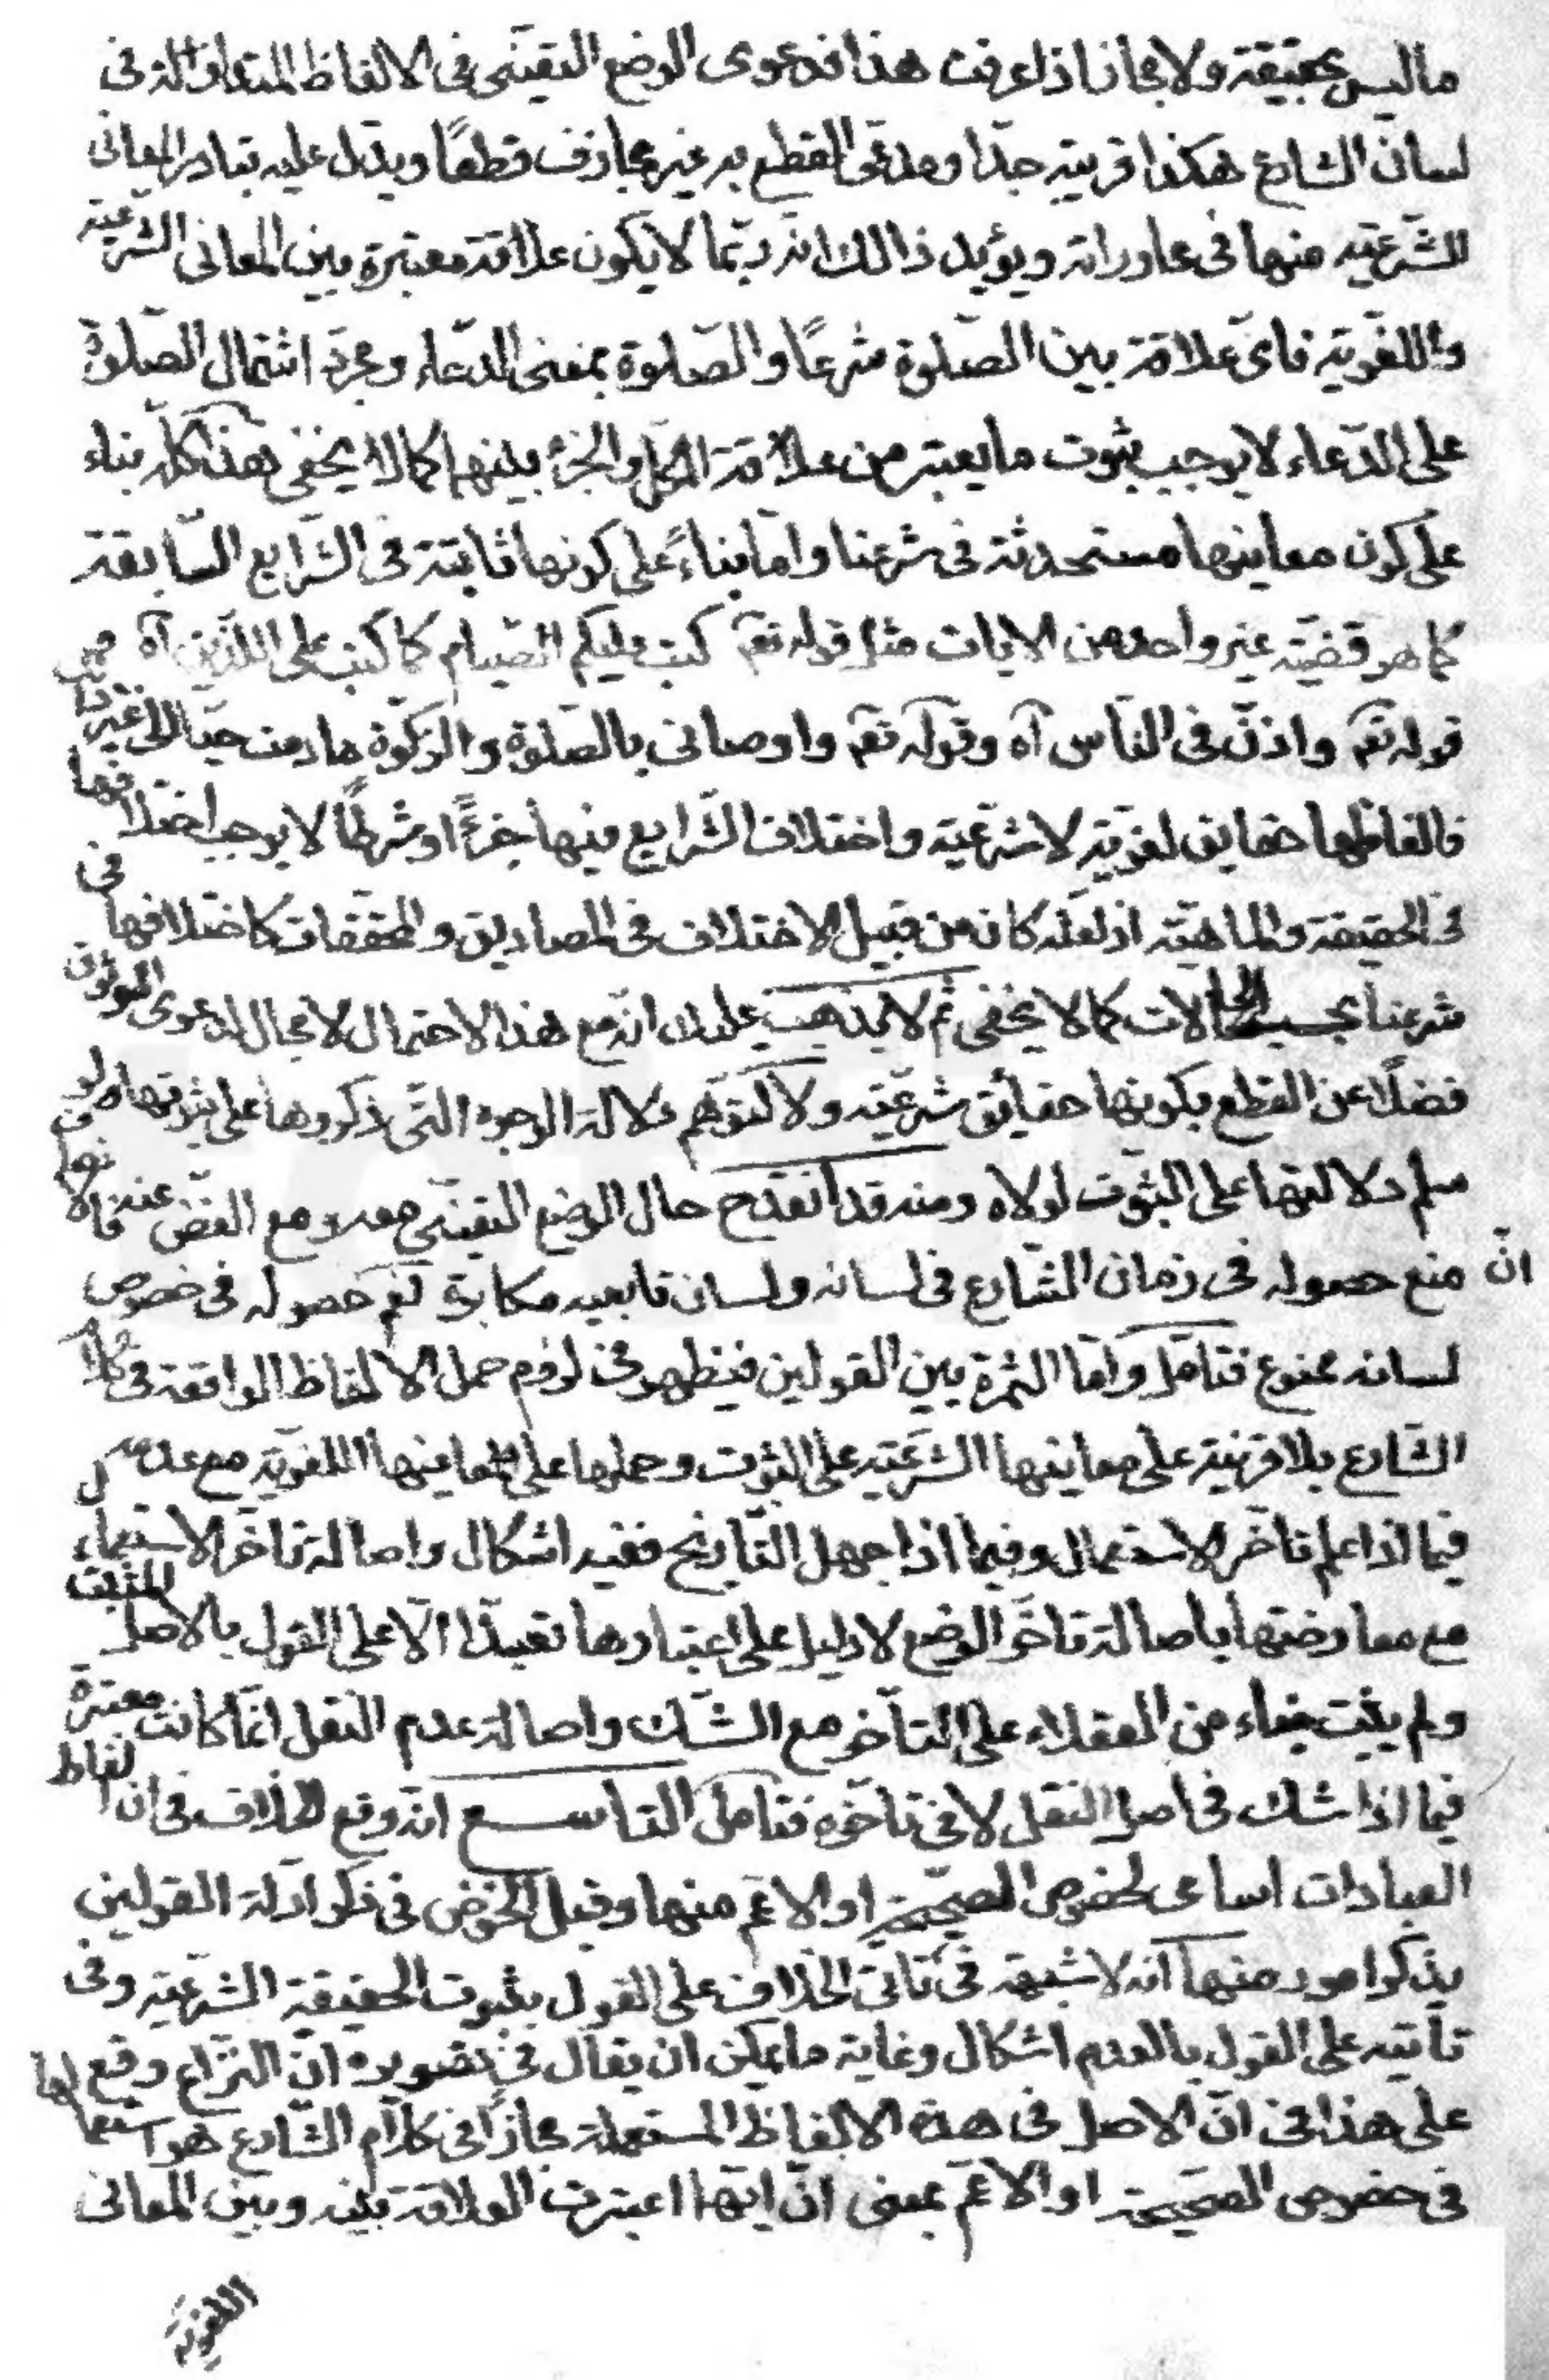 ما ليس بحقيقة ولا مجاز اذا عرفت هذا فدعوى الوضع التعينى فى الالفاظ المتداولة فى
لسان الشارع هكذا قريبة جدّا ومدّعى القطع به غير مجازف قطعًا ويدّل عليه تبادر المعانى
الشّرعيّة منها فى محاوراته ويؤيد ذالك انه ربّما لا يكون علاقة معتبرة بين المعانى الشرعيّة
واللغويّة فاى علاقة بين الصّلوة شرعًا والصّلوة بمعنى الدّعاء ومجرّد اشتمال الصّلوة
على الدّعاء لا يوجب ثبوت ما يعتبر من علاقة الكل والجزء بينهما كما لا يخفى هذا كلّه بناء
على كون معاينها مستحدثة فى شرعنا وامّا بناءً على كونها ثابتة فى الشّرايع السّابقة
كما هو قضيّة غير واحد من الايات مثل قوله تعم كتب عليكم الصّيام كما كتب على اللّذين آه و
قوله تعم واذّن فى النّاس آه وقوله تعم واوصانى بالصّلوة والزّكوة ما دمت حيّا الى غير ذلك
فالفاظها حقايق لغويّة لا شرعيّة واختلاف الشّرايع فيها جزءًا او شرطًا لا يوجب اختلافها
فى الحقيقة والماهيّة اذ لعلّه كان من قبيل الاختلاف فى المصاديق والمحقّقات كاختلافها فى
شرعنا بحسب الحالات كما لا يخفى ثم لا يذهب عليك انّه مع هذا الاحتمال لا مجال لدعوى الوثوق
فضلًا عن القطع بكونها حقائق شرعيّة ولا لتوهّم دلالة الوجوه الّتى ذكروها على ثبوتها لو
سلم دلالتها على الثبوت لولاه ومنه قد انقدح حال الوضع التعينّى معه ومع الغضّ عنه فالانصاف
انّ منع حصوله فى زمان الشّارع فى لسانه ولسان تابعيه مكابرة نعم حصوله فى خصوص
لسانه ممنوع فتامّل وامّا الثمرة بين القولين فيظهر فى لزوم حمل الالفاظ الواقعة فى كلام
الشّارع بلا قرينة على معاينها الشّرعيّة على الثبوت وحملها على معاينها اللغويّة مع عدمه
فيما اذا علم تاخّر الاستعمال وفيما اذا جهل التّاريخ ففيه اشكال واصالة تاخّر الاستعمال
مع معارضتها باصالة تاخّر الوضع لا دليل على اعتبارها تعبّدًا الّا على القول بالاصل المثبت
ولم يثبت بناء من العقلاء على التاخر مع الشّك واصالة عدم النقل انّما كانت معتبرة
فيما اذا شك فى اصل النقل لا فى تاخّره فتامل التاسع انه وقع الخلاف فى ان الفاظ
العبادات اسامى لخصوص الصحيحة او الاعّم منها وقبل الخوض فى ذكر ادلّة القولين
يذكر امور منها انه لا شبهة فى تاتى الخلاف على القول بثبوت الحقيقة الشرعيّة وفى
تاتيه على القول بالعدم اشكال وغاية ما يمكن ان يقال فى تصويره انّ النّزاع وقع
على هذا فى انّ الاصل فى هذه الالفاظ المستعملة مجازًا فى كلام الشّارع هو استعمالها
فى خصوص الصحيحة او الاعّم بمعنى انّ ايّها اعتبرت العلاقة بينه وبين المعانى
اللغويّة